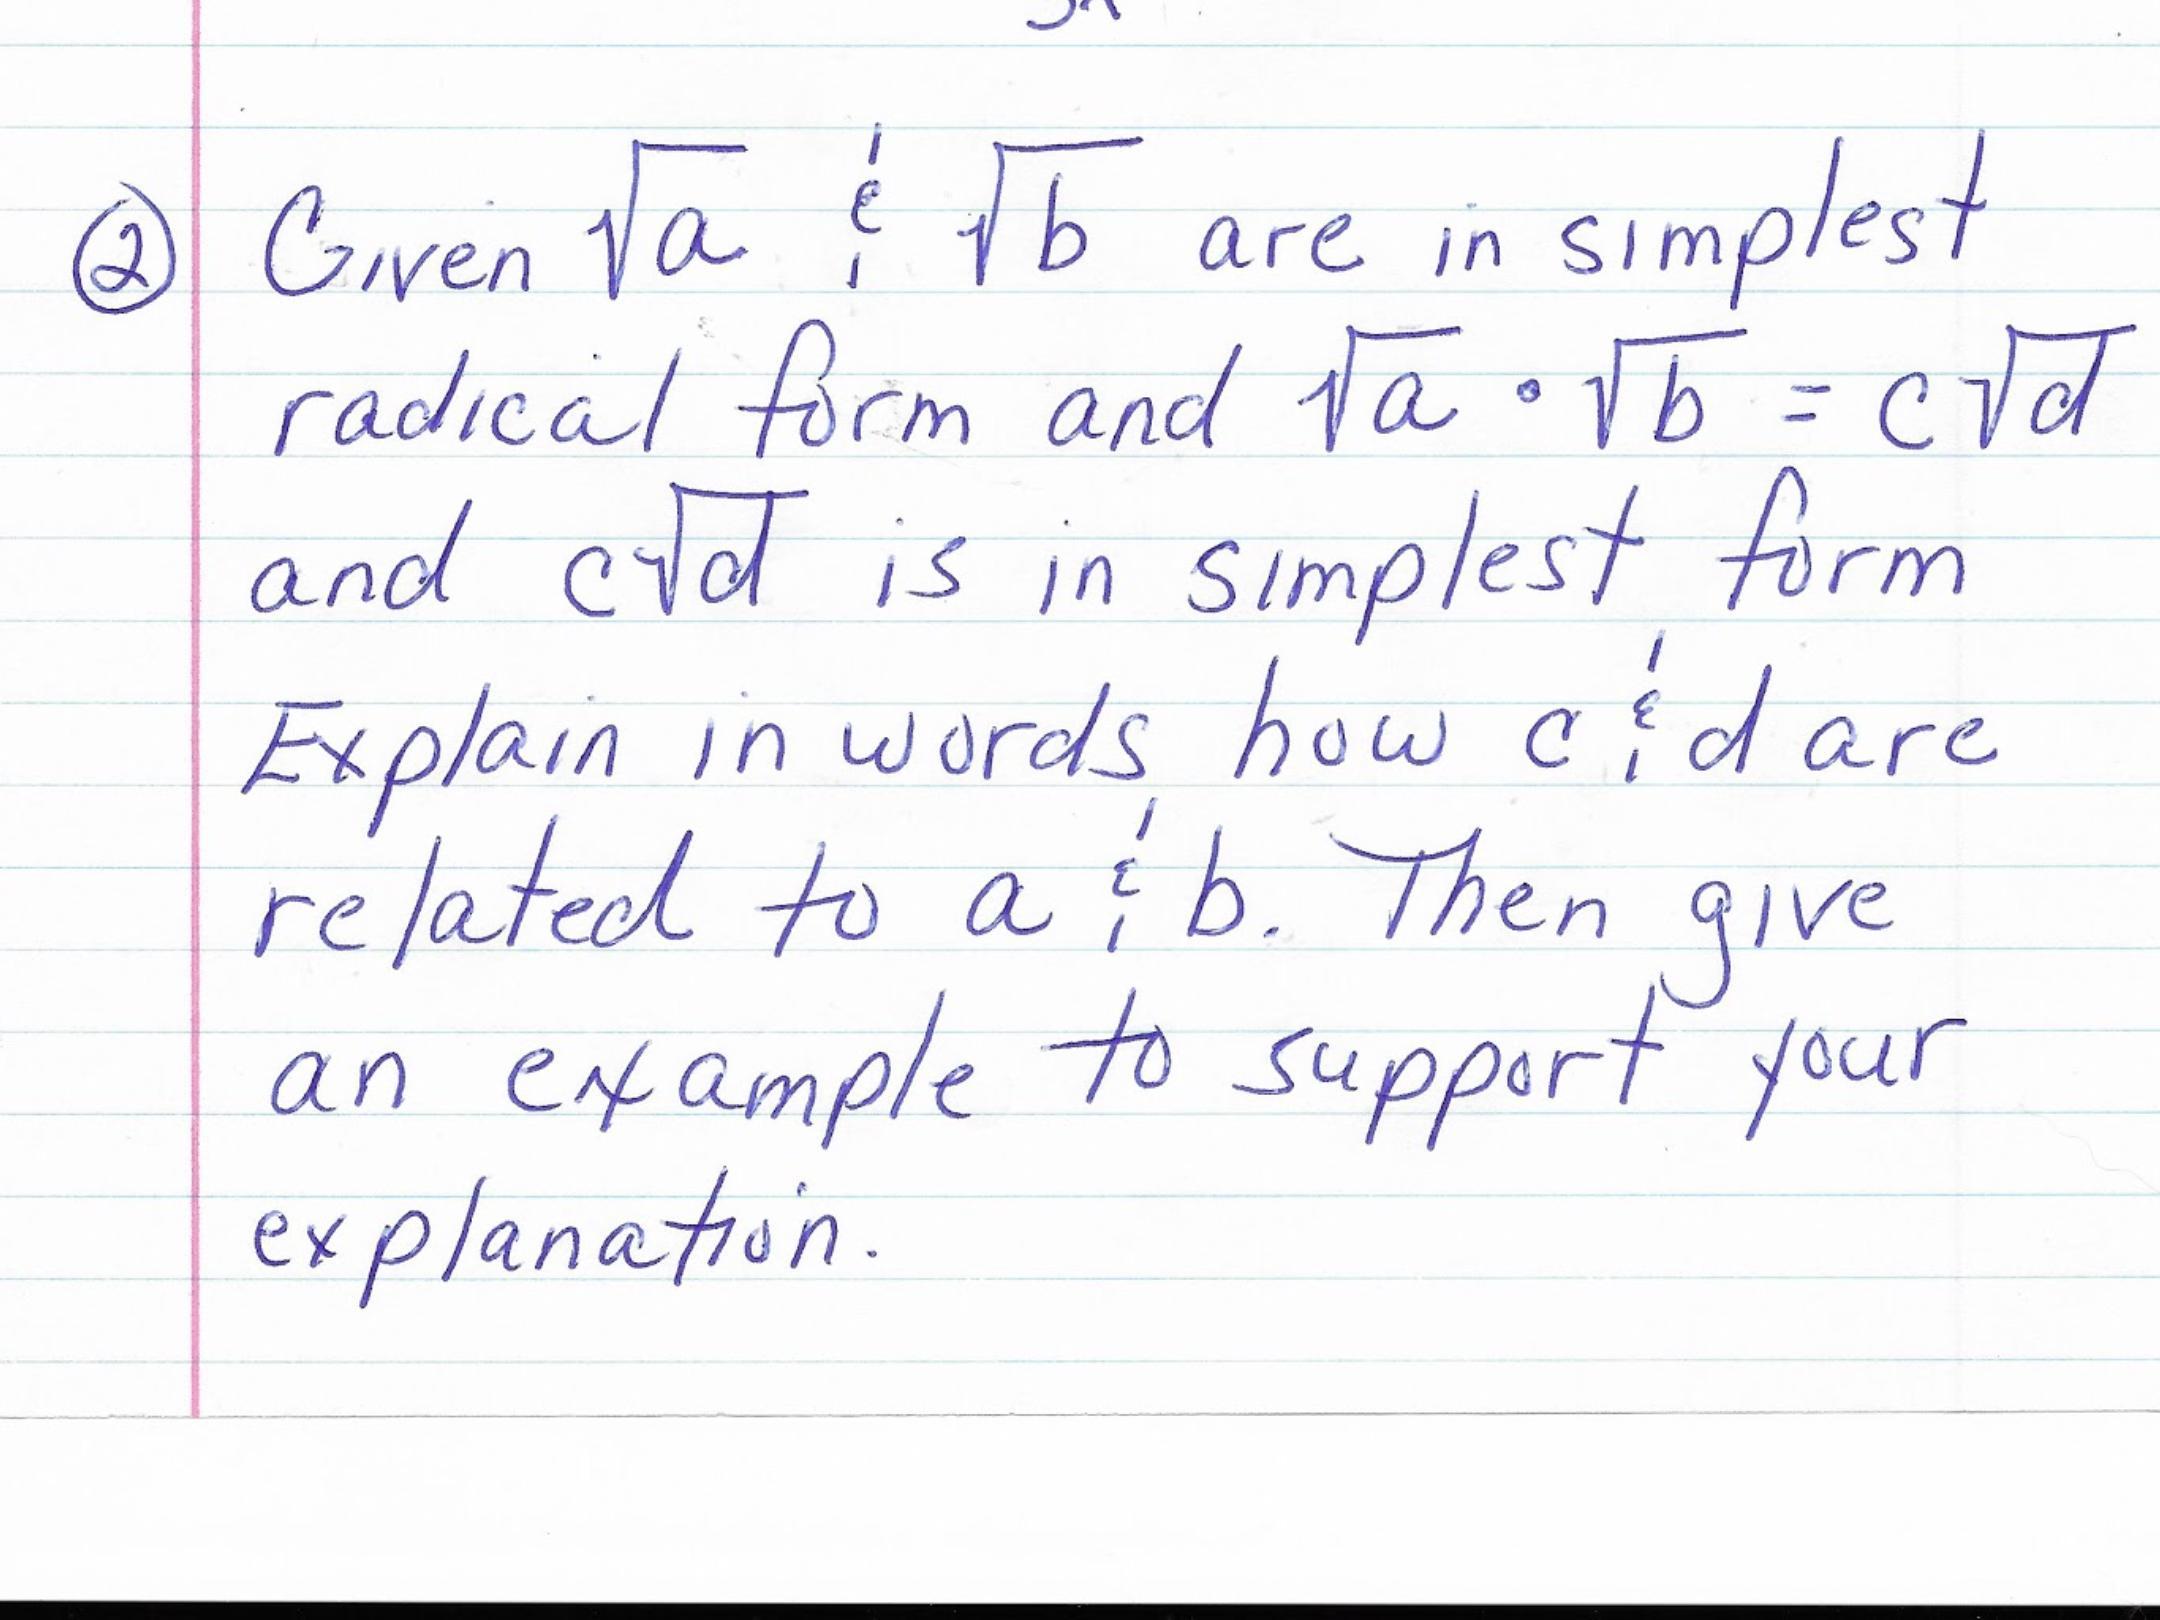 ② Given √a & √b are in simplest
radical form and √a • √b = c√d
and c√d is in simplest form
Explain in words how c & d are
related to a & b. Then give
an example to support your
explanation.